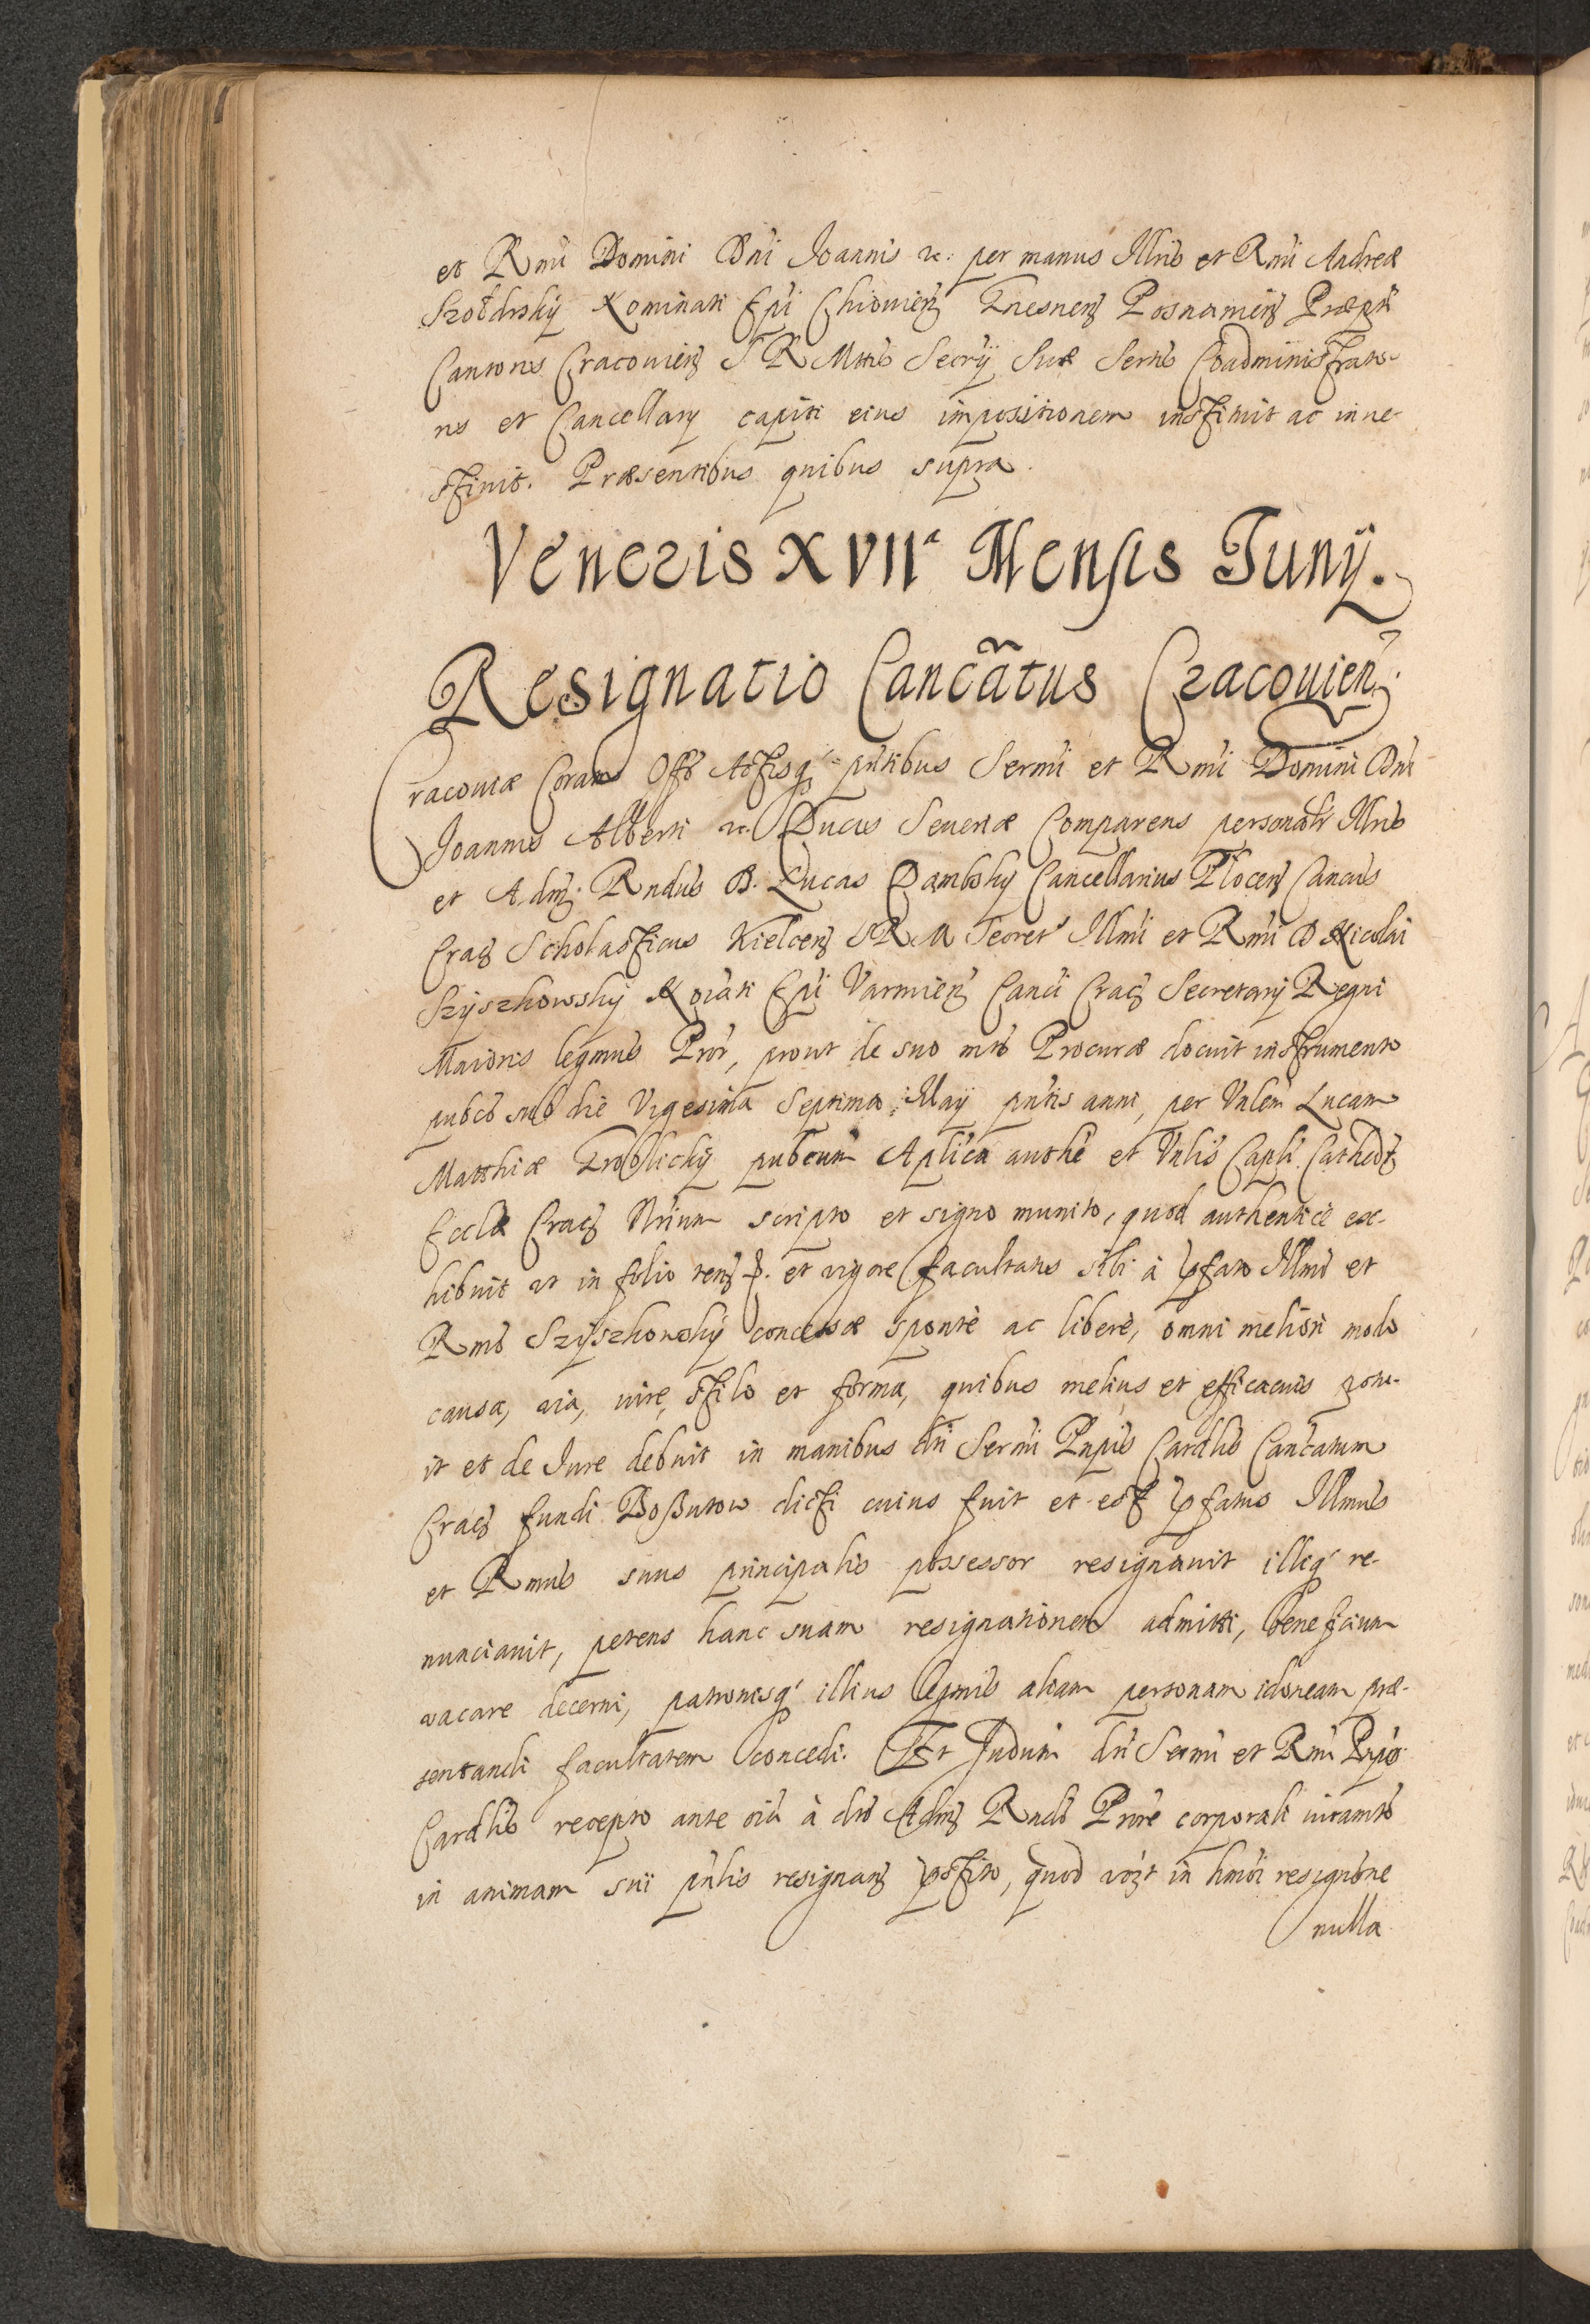 et Rmi Domini Dni Joannis etc: per manus Illris et Rmi Andreæ
Szołdrskij Nominati Epi Chiouien Gnesnen Posnanien Præpti
Cantoris Cracouien S R Mttis Secrij Suæ Sertis Coadministrato-
ris et Cancellarij capiti eius impositionem instituit ac inue-
stiuit. Præsentibus quibus supra.
Veneris XVIIa Mensis Junij.
Resignatio Cancatus Cracouien.
Cracouiæ Coram Offo Actisq pntibus Sermi et Rmi Domini Dni
Joannis Alberti etc. Ducis Seueriæ Comparens personalr Illris
et Adm. Rndus D. Lucas Dambskij Cancellarius Plocen Cancus
Crac Scholasticus Kielcen S R M Secret Illmi et Rmi D Nicolai
Szyszkowskij Noiati Epi Varmien Canci Crac Secretarij Regni
Maioris legmus Pror, prout de suo mto Procuræ docuit instrumento
pubco sub die Vigesima Septima Maij pntis anni, per Vnlem Lucam
Matthiæ Groblickij pubcum Aplica authe et Vnlis Capli Cathedr
Ecclæ Crac Nrium scripto et signo munito, quod authentice ex-
hibuit vt in folio ten p. et vigore facultatis sibi à pfato Illmo et
Rmo Szyszkowskij concessæ sponte ac libere, omni meliori modo
causa, via, iure, stilo et forma, quibus melius et efficacius potu-
it et de Jure debuit in manibus dti Sermi Pnpis Cardlis Cancatum
Crac fundi Boßutow dicti cuius fuit et est pfatus Illmus
et Rmus suus principalis possessor resignauit illiq re-
nunciauit, petens hanc suam resignationem admitti, beneficium
vacare decerni, patronisq illius legmis aliam personam idoneam præ-
sentandi facultatem concedi. Et Judum dti Sermi et Rmi Pnpis
Cardlis recepto ante oia à dto Adm Rndo Prore corporali iuramto
in animam sui pnlis resignan pstito, quod non in hmoi resignone
nulla